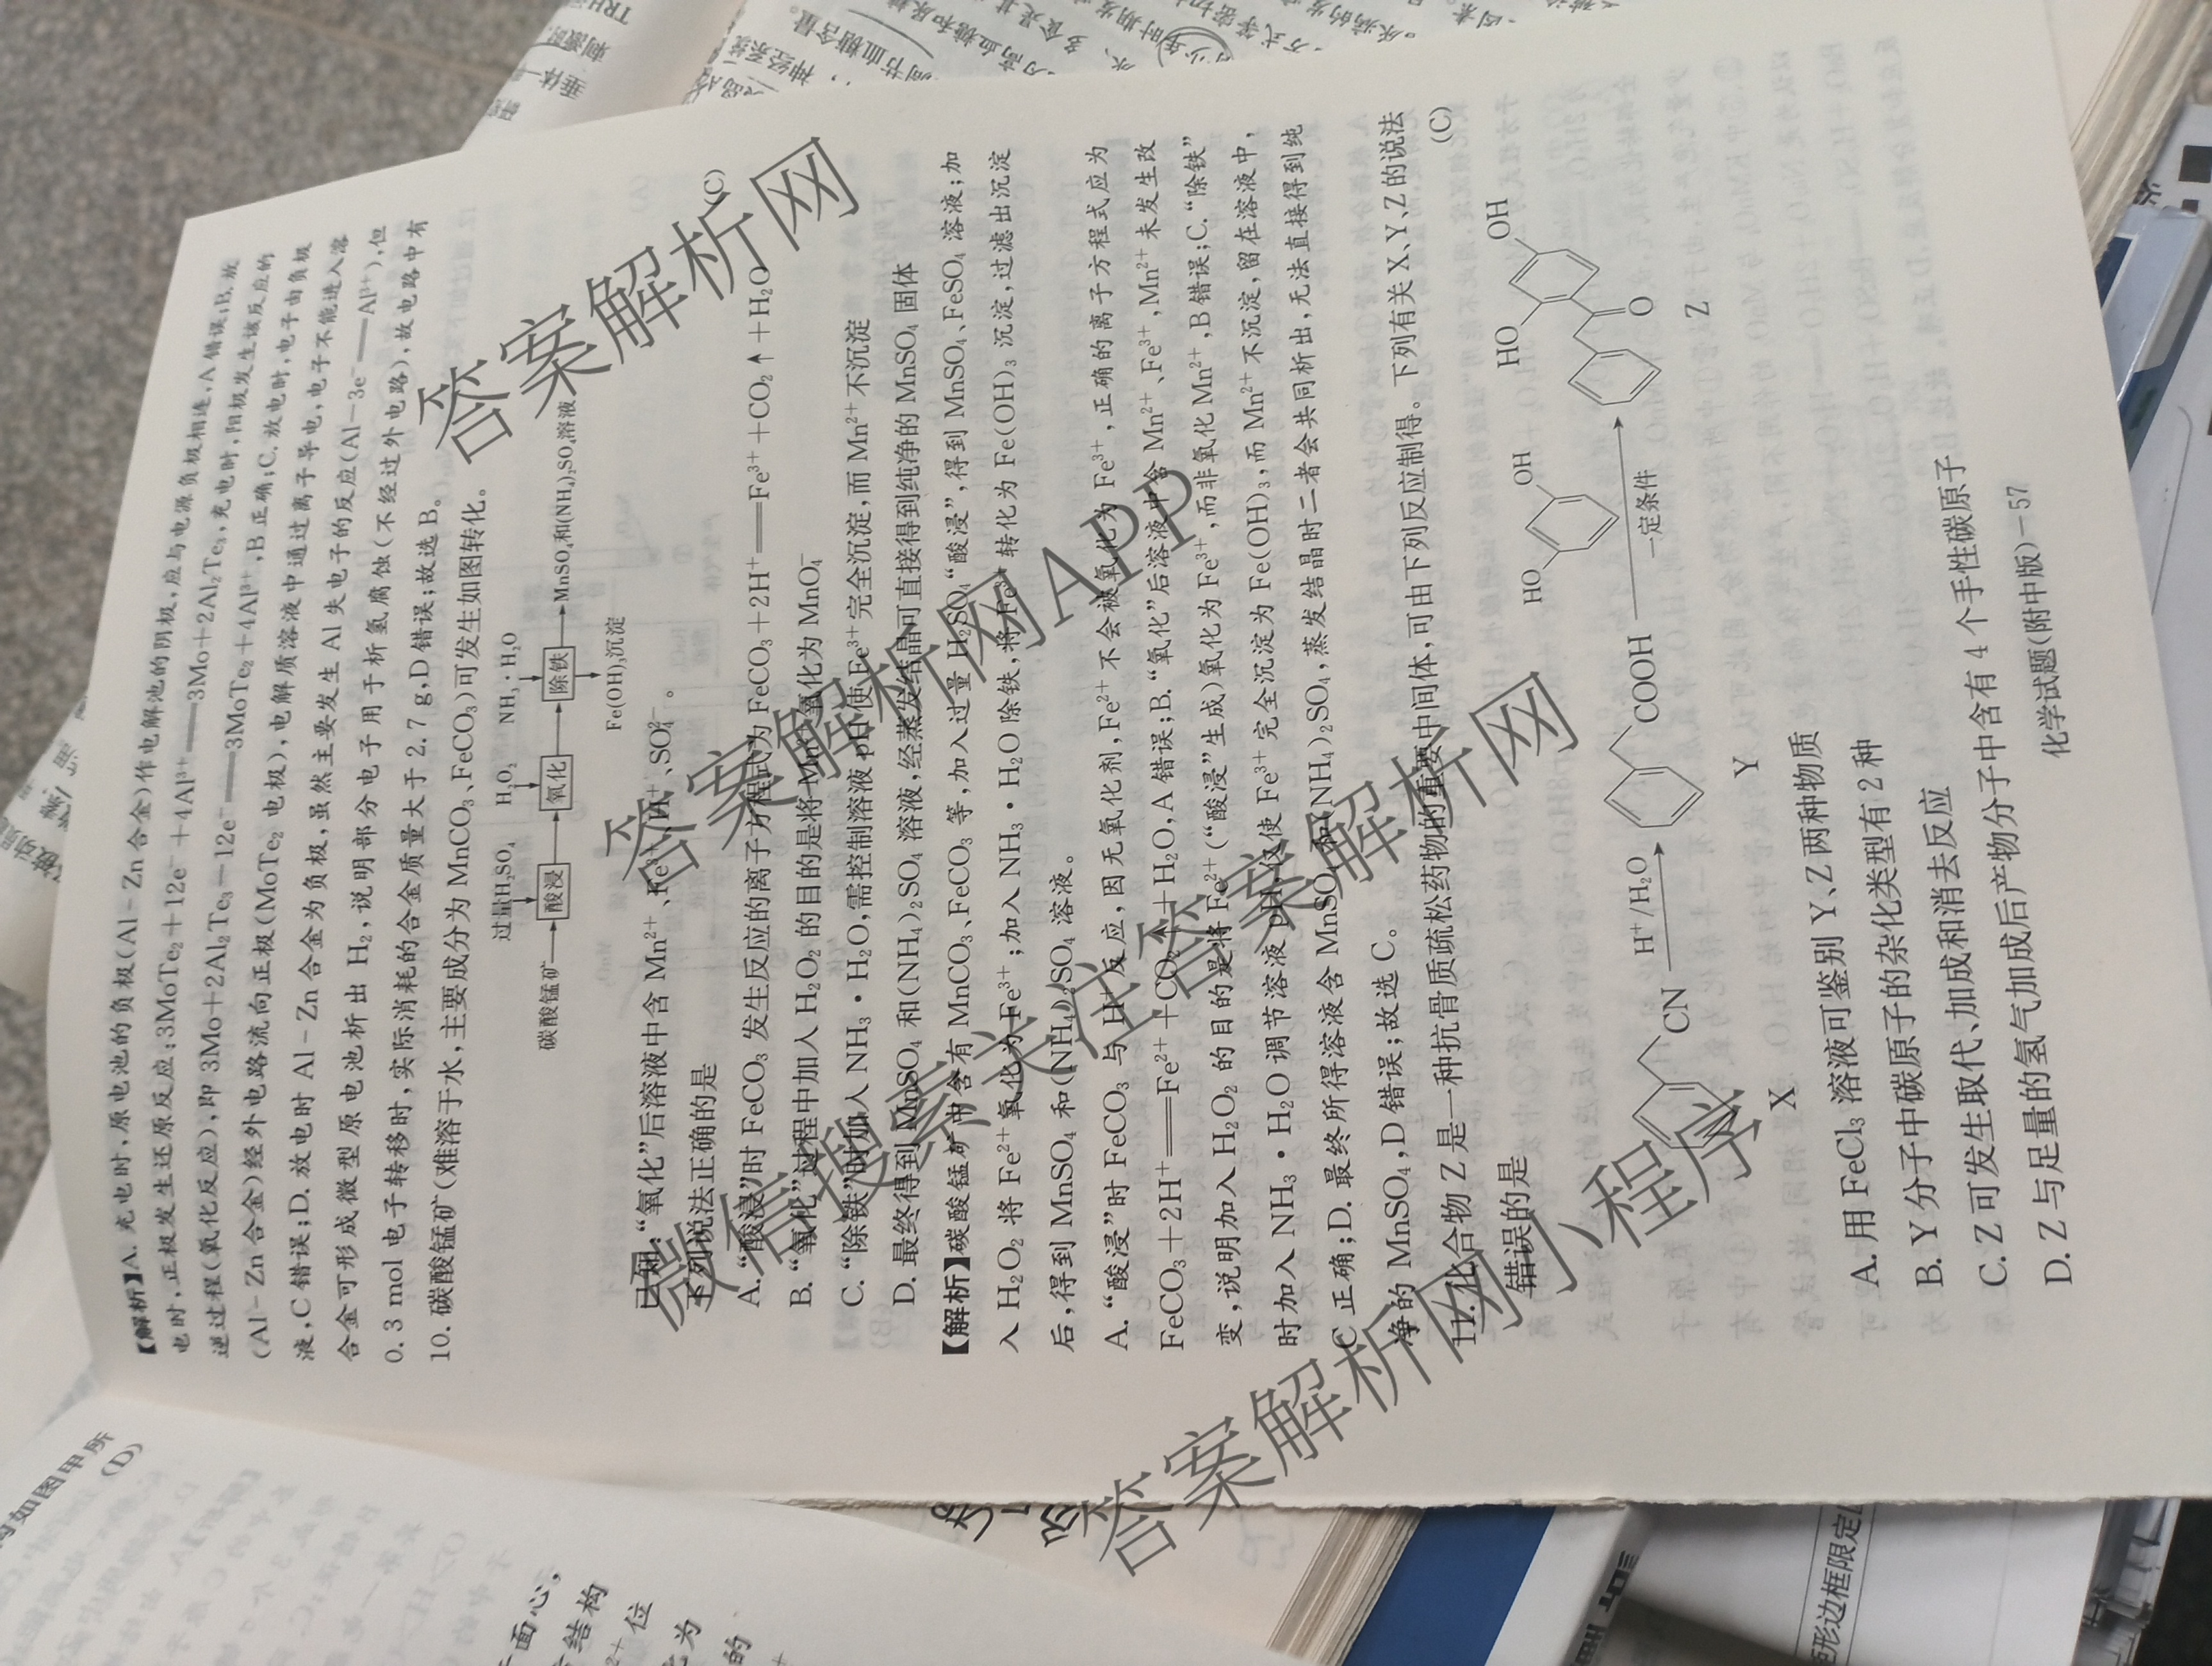 【解析】A. 充电时,原电池的负极(Al-Zn合金)作电解池的阴极,应与电源负极相连,A错误;B. 放
电时,正极发生还原反应:3MoTe₂+12e⁻+4Al³⁺══3Mo+2Al₂Te₃,充电时,阳极发生该反应的
逆过程(氧化反应),即 3Mo+2Al₂Te₃-12e⁻══3MoTe₂+4Al³⁺,B正确;C. 放电时,电子由负极
(Al-Zn合金)经外电路流向正极(MoTe₂电极),电解质溶液中通过离子导电,电子不能进入溶
液,C错误;D. 放电时Al-Zn合金为负极,虽然主要发生Al失电子的反应(Al-3e⁻══Al³⁺),但
合金可形成微型原电池析出H₂,说明部分电子用于析氢腐蚀(不经过外电路),故电路中有
0.3 mol电子转移时,实际消耗的合金质量大于2.7 g,D错误;故选B。
10. 碳酸锰矿(难溶于水,主要成分为MnCO₃、FeCO₃)可发生如图转化。
过量H₂SO₄ H₂O₂ NH₃·H₂O
碳酸锰矿 酸浸 氧化 除铁 MnSO₄和(NH₄)₂SO₄溶液
Fe(OH)₃沉淀
已知:“氧化”后溶液中含Mn²⁺、Fe³⁺、H⁺、SO₄²⁻。
下列说法正确的是 (C)
A. “酸浸”时FeCO₃发生反应的离子方程式为FeCO₃+2H⁺══Fe³⁺+CO₂↑+H₂O
B. “氧化”过程中加入H₂O₂的目的是将Mn²⁺氧化为MnO₄⁻
C. “除铁”时加入NH₃·H₂O,需控制溶液pH使Fe³⁺完全沉淀,而Mn²⁺不沉淀
D. 最终得到MnSO₄和(NH₄)₂SO₄溶液,经蒸发结晶可直接得到纯净的MnSO₄固体
【解析】碳酸锰矿中含有MnCO₃、FeCO₃等,加入过量H₂SO₄“酸浸”,得到MnSO₄、FeSO₄溶液;加
入H₂O₂将Fe²⁺氧化为Fe³⁺;加入NH₃·H₂O除铁,将Fe³⁺转化为Fe(OH)₃沉淀,过滤出沉淀
后,得到MnSO₄和(NH₄)₂SO₄溶液。
A. “酸浸”时FeCO₃与H⁺反应,因无氧化剂,Fe²⁺不会被氧化为Fe³⁺,正确的离子方程式应为
FeCO₃+2H⁺══Fe²⁺+CO₂↑+H₂O,A错误;B. “氧化”后溶液中含Mn²⁺、Fe³⁺,Mn²⁺未发生改
变,说明加入H₂O₂的目的是将Fe²⁺(“酸浸”生成)氧化为Fe³⁺,而非氧化Mn²⁺,B错误;C. “除铁”
时加入NH₃·H₂O调节溶液pH,仅使Fe³⁺完全沉淀为Fe(OH)₃,而Mn²⁺不沉淀,留在溶液中,
C正确;D. 最终所得溶液含MnSO₄和(NH₄)₂SO₄,蒸发结晶时二者会共同析出,无法直接得到纯
净的MnSO₄,D错误;故选C。
11. 化合物Z是一种抗骨质疏松药物的重要中间体,可由下列反应制得。下列有关X、Y、Z的说法
错误的是 (C)
CN H⁺/H₂O COOH HO OH 一定条件 HO OH O
X Y Z
A. 用FeCl₃溶液可鉴别Y、Z两种物质
B. Y分子中碳原子的杂化类型有2种
C. Z可发生取代、加成和消去反应
D. Z与足量的氢气加成后产物分子中含有4个手性碳原子
化学试题(附中版)-57
答案解析网
答案解析网APP
微信搜索关注答案解析网
答案解析网小程序